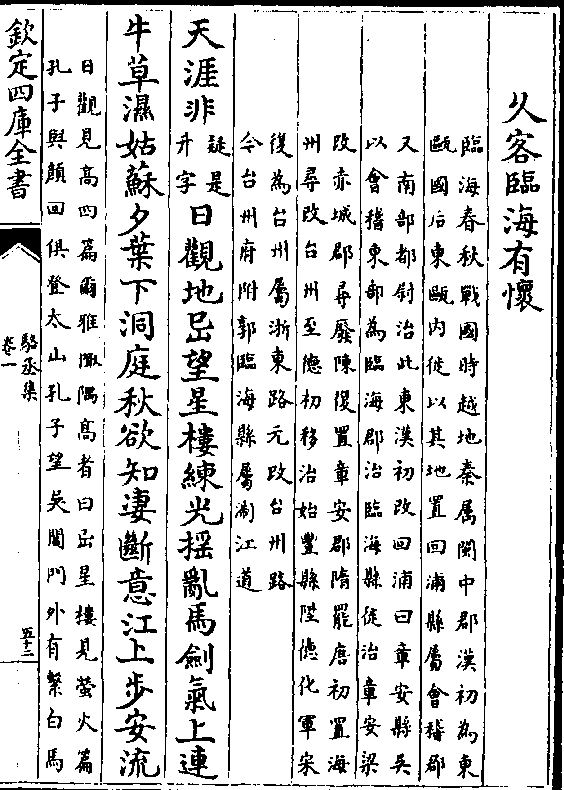 久客臨海有懷
臨海春秋戰國時越地秦屬閩中郡漢初為東
甌國后東甌内徙以其地置回浦縣屬會稽郡
又南部都尉治此東漢初改回浦曰章安縣吳
以會稽東部為臨海郡治臨海縣徙治章安梁
改赤城郡尋廢陳復置章安郡隋罷唐初置海
州尋改台州至德初移治始豐縣陞德化軍宋
後為台州屬浙東路元改台州路
今台州府附郭臨海縣屬浙江道
天涯非疑是升字日觀地岊望星樓練光揺亂馬劍氣上連
牛草濕姑蘇夕葉下洞庭秋欲知凄斷意江上步安流
日觀見髙四篇爾雅陬隅髙者曰岊星樓見螢火篇
孔子與顔回俱登太山孔子望吳閶門外有繫白馬
欽定四庫全書
駱丞集
卷一
五十三